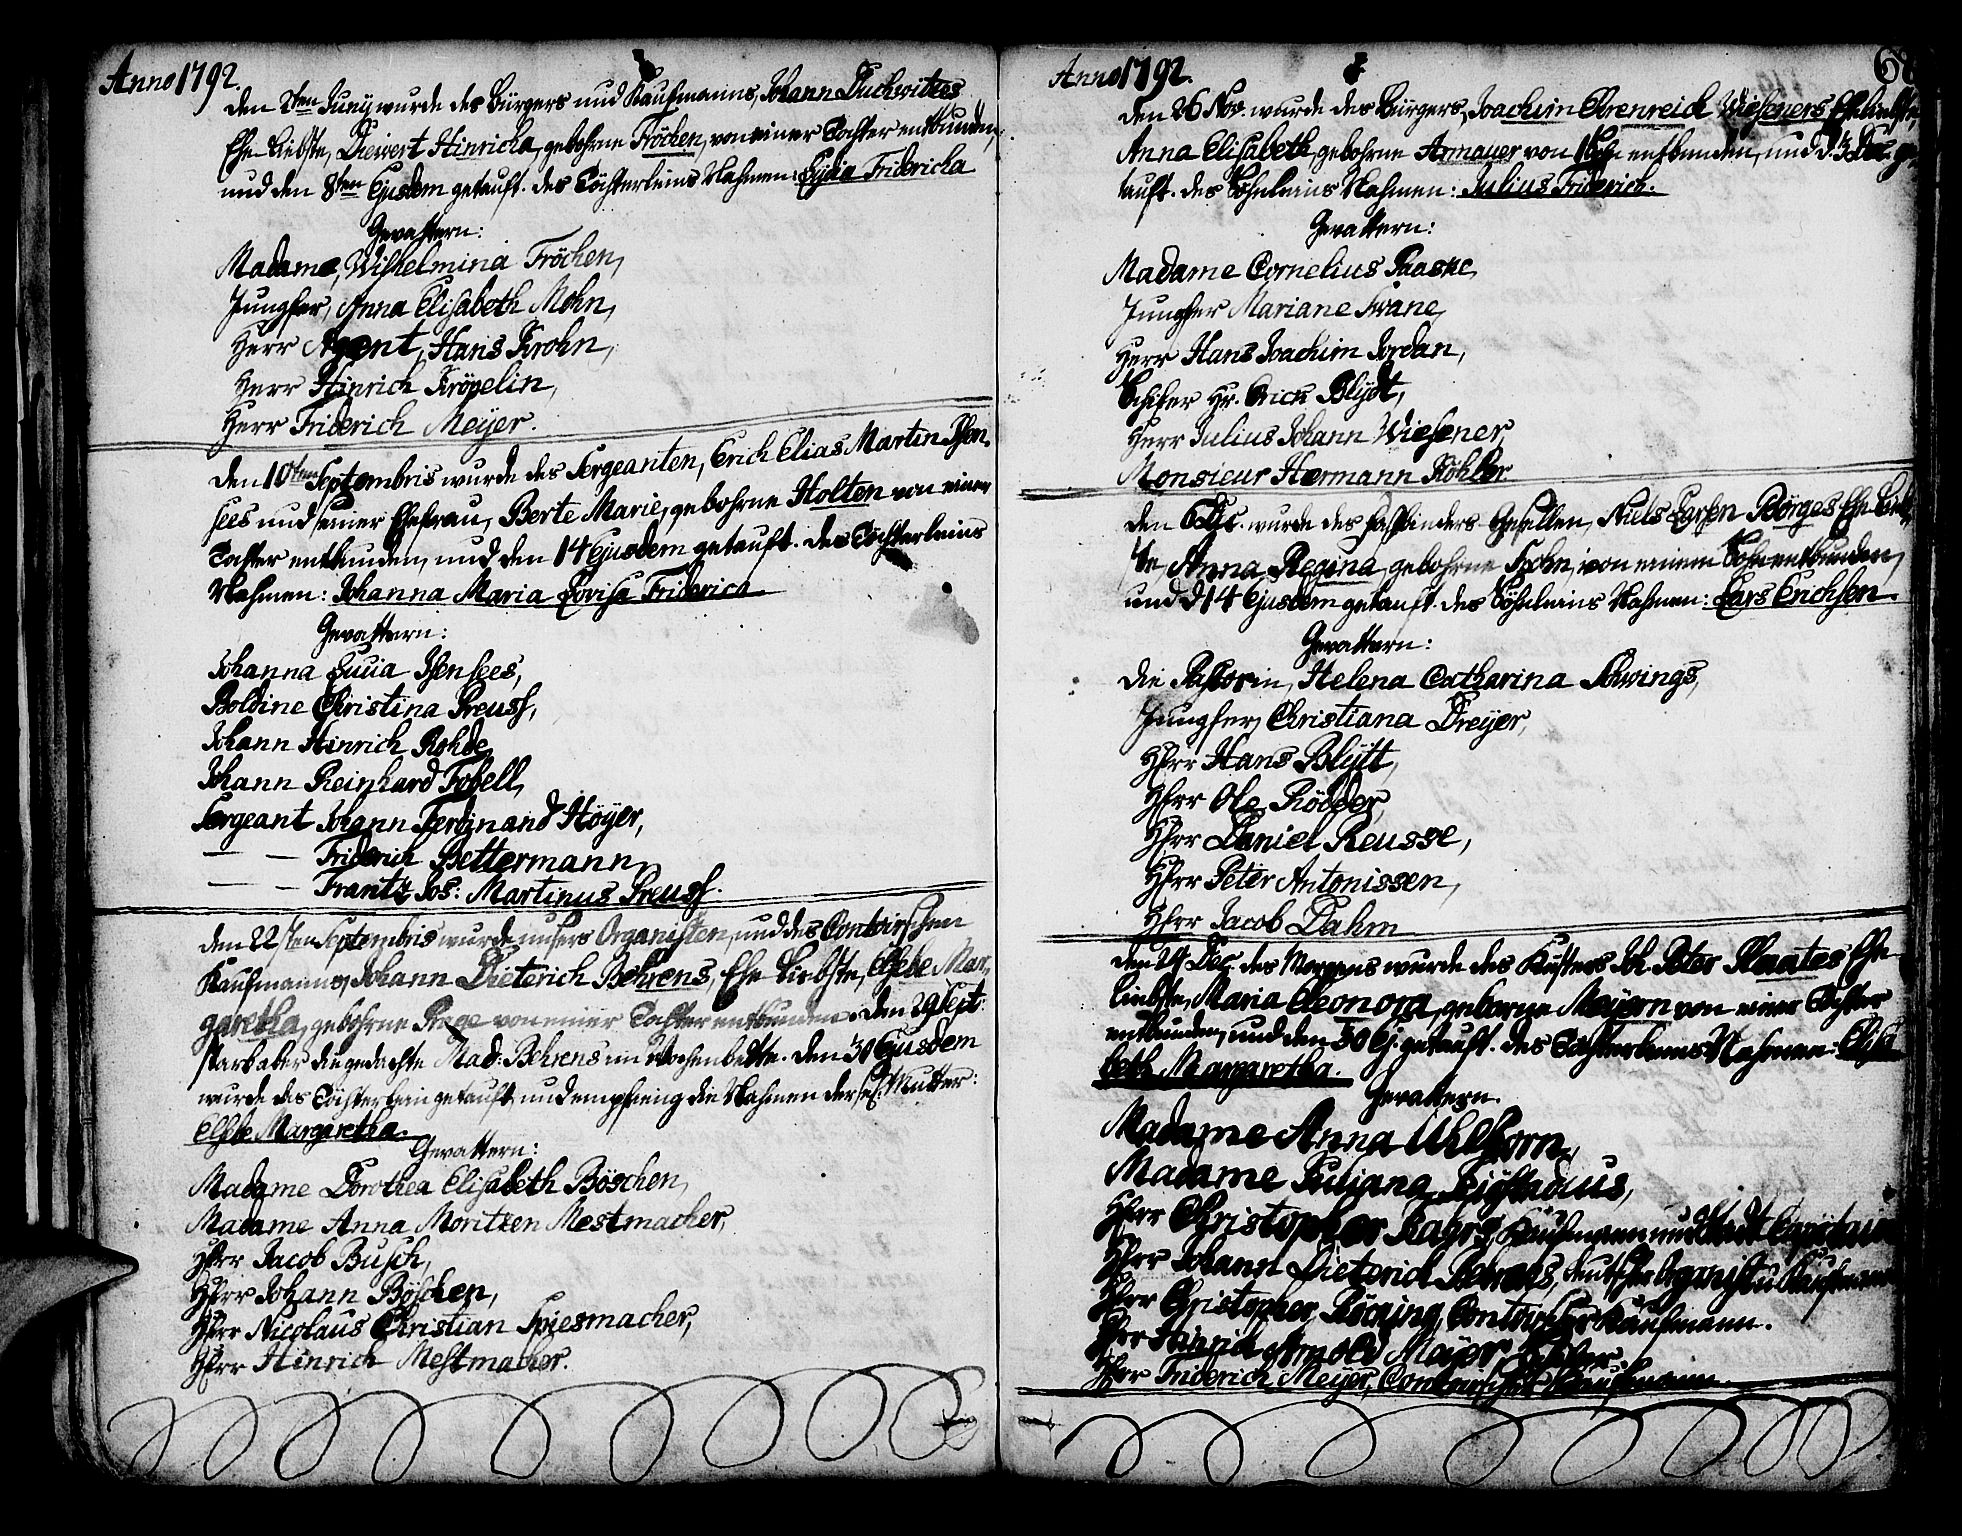 Anno 1792.
den 2ten Juny wurde des Bürgers und Kaufmanns, Johann Duckwitzes
Ehe-Liebste, Diewert Hinricha, gebohrne Fröchen, von einer Tochter entbunden,
und den 8ten Ejusdem getauft. des Töchterleins Nahmen: Lydia Fridericha
Gevattern:
Madame, Wilhelmina Fröchen,
Jungfer, Anna Elisabeth Mohn,
Herr Agent, Hans Krohn,
Herr Hinrich Kröpelin,
Herr Friderich Meÿer.
den 10ten Septembris wurde des Sergeanten, Erich Elias Martin Isen-
sees und seiner Ehefrau, Berte Marie, gebohrne Holten von einer
Tochter entbunden, und den 14 Ejusdem getauft. des Töchterleins
Nahmen: Johanna Maria Lovisa Friderica
Gevattern:
Johanna Lucia Isensees,
Boldine Christina Preuss,
Johann Hinrich Rohde,
Johann Reinhard Tobell,
Sergeant Johann Ferdinand Höÿer,
— — Friderich Bettermann,
— — Frantz Jos: Martinus Preuss.
den 22sten Septembris wurde unsers Organisten, und des Contoirschen
Kaufmanns, Johann Dieterich Behrens, Ehe Liebste, Elsebe Mar-
garetha, gebohrne Prage von einer Tochter entbunden. den 29 Sept:
starb aber die gedachte Mad: Behrens im Wochenbette. den 30 Ejusdem
wurde des Töchterlein getauft, und empfieng die Nahmen der sel: Mutter:
Elsebe Margaretha.
Gevattern:
Madame Dorothea Elisabeth Böschen,
Madame Anna Moritzen Mestmacher,
Herr Jacob Busch,
Herr Johann Böschen,
Herr Nicolaus Christian Spiesmacher,
Herr Hinrich Mestmacher.
Anno 1792.
68
den 26 Nov. wurde des Bürgers, Joachim Ehrenreich Wieseners Eheliebste,
Anna Elisabeth, gebohrne Armauer von 1 Sohn entbunden, und d. 3 Dec. ge-
tauft. des Söhnleins Nahmen: Julius Friderich.
Gevattern:
Madame Cornelius Paaske,
Jungfer Mariane Svane,
Herr Hans Joachim Jordan,
Schifer Hr. Erick Blÿdt,
Herr Julius Johann Wiesener,
Monsieur Hermann Köhler.
den 6 Dec. wurde des Fassbinders-Gesellen, Niels Larsen Börges Ehe Lieb-
ste, Anna Regina, gebohrne Spohn, von einem Sohn entbunden,
und d 14 Ejusdem getauft. des Söhnleins Nahmen: Lars Erichsen.
Gevattern:
die Pastorin, Helena Catharina Schwings,
Jungfer, Christiana Dreÿer,
Herr Hans Blÿtt,
Herr Ole Rödder,
Herr Daniel Reusse,
Herr Peter Antonissen,
Herr Jacob Dahm
den Dec. des Morgens wurde des Küsters Joh. Peter Plaates Ehe-
liebste, Maria Eleonora, geborne Meÿern von einer Tochter
entbunden, und den 30 Ej. getauft. des Töchterleins Nahmen: Elisa-
beth Margaretha.
Gevattern.
Madame Anna Uhlhorn,
Madame Juliana
Herr Christopher Kahrs, Kaufmann und Stadt Capitain
Herr Johann Dieterich Behrens, deutscher Organist u Kaufmann
Herr Christopher Contoirscher Kaufmann.
Herr Hinrich Arnold Meÿer,
Herr Friderich Meÿer, Contoirscher Kaufmann.